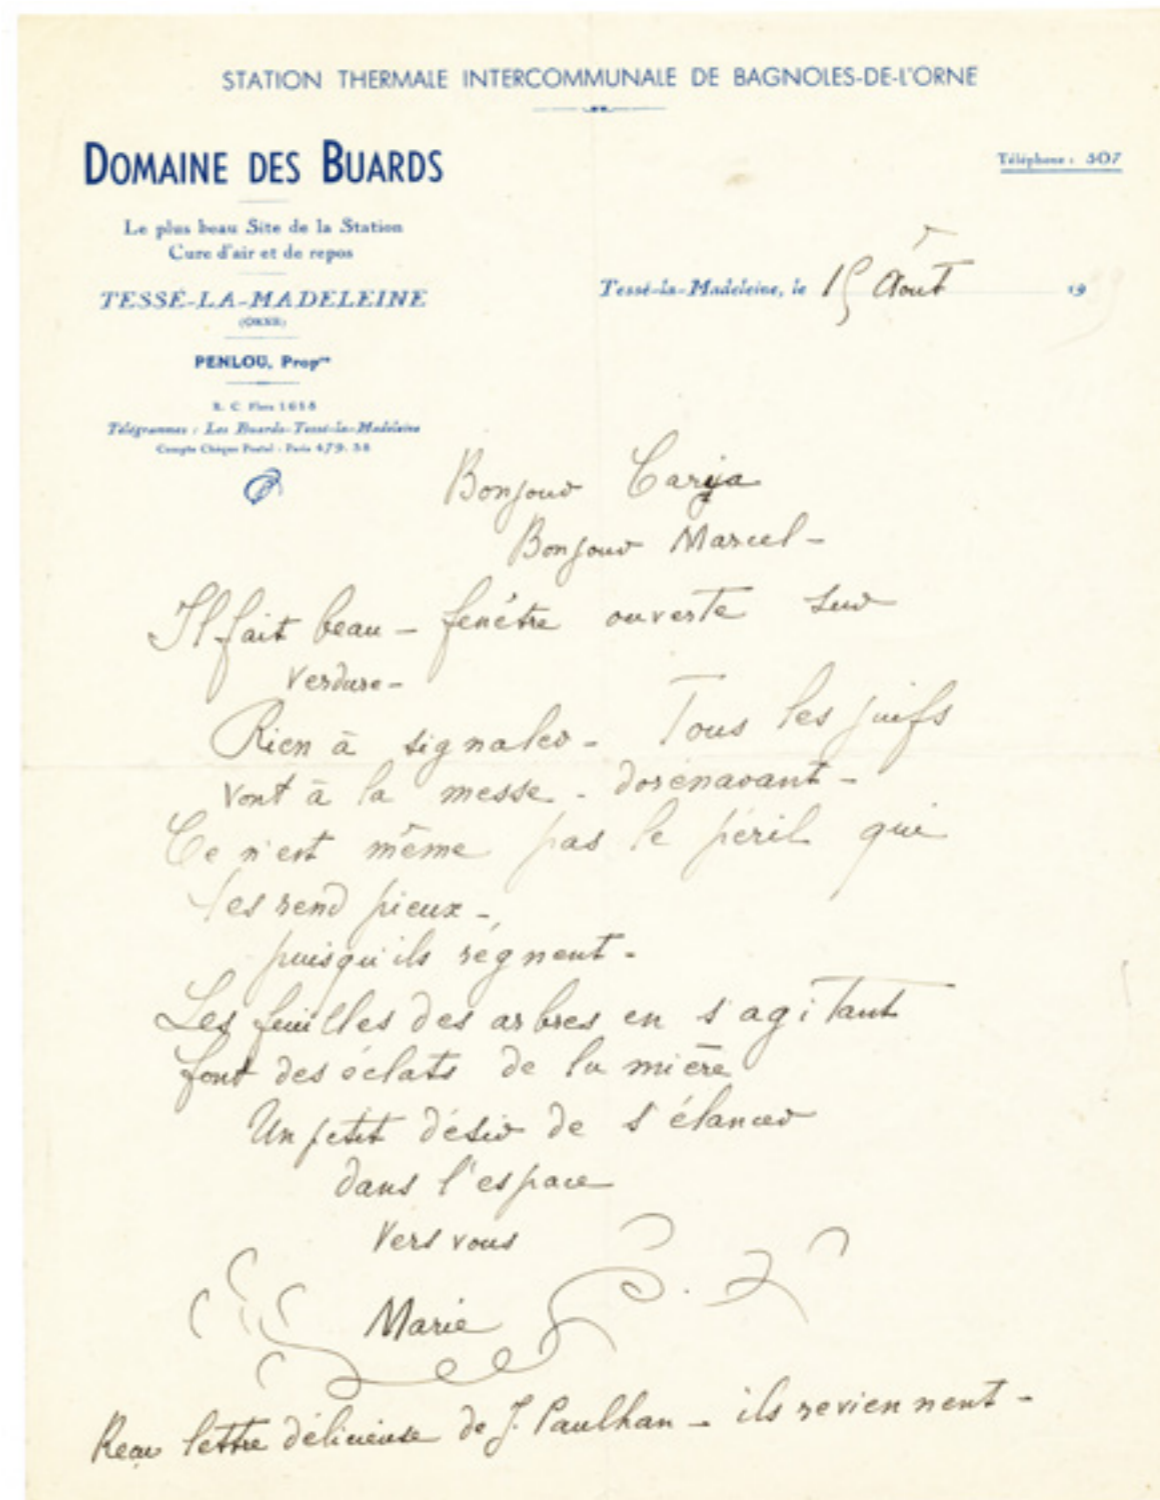 STATION THERMALE INTERCOMMUNALE DE BAGNOLES-DE-L'ORNE
DOMAINE DES BUARDS
Téléphone : 307
Le plus beau Site de la Station
Cure d'air et de repos
TESSÉ-LA-MADELEINE
(ORNE)
Tessé-la-Madeleine, le 15 Août 19
PENLOU, Prop
R. C. Flers 1618
Télégrammes : Les Buards-Tessé-la-Madeleine
Compte Chèque Postal - Paris 479.38
Bonjour Caryа
Bonjour Marcel -
Il fait beau - fenêtre ouverte sur
verdure -
Rien à signaler - Tous les juifs
vont à la messe - dorénavant -
Ce n'est même pas le péril qui
les rend pieux -
puisqu'ils règnent -
Les feuilles des arbres en s'agitant
font des éclats de lumière
Un petit désir de s'élancer
dans l'espace
Vers vous
Marie
Reçu lettre délicieuse de J. Paulhan - ils reviennent -